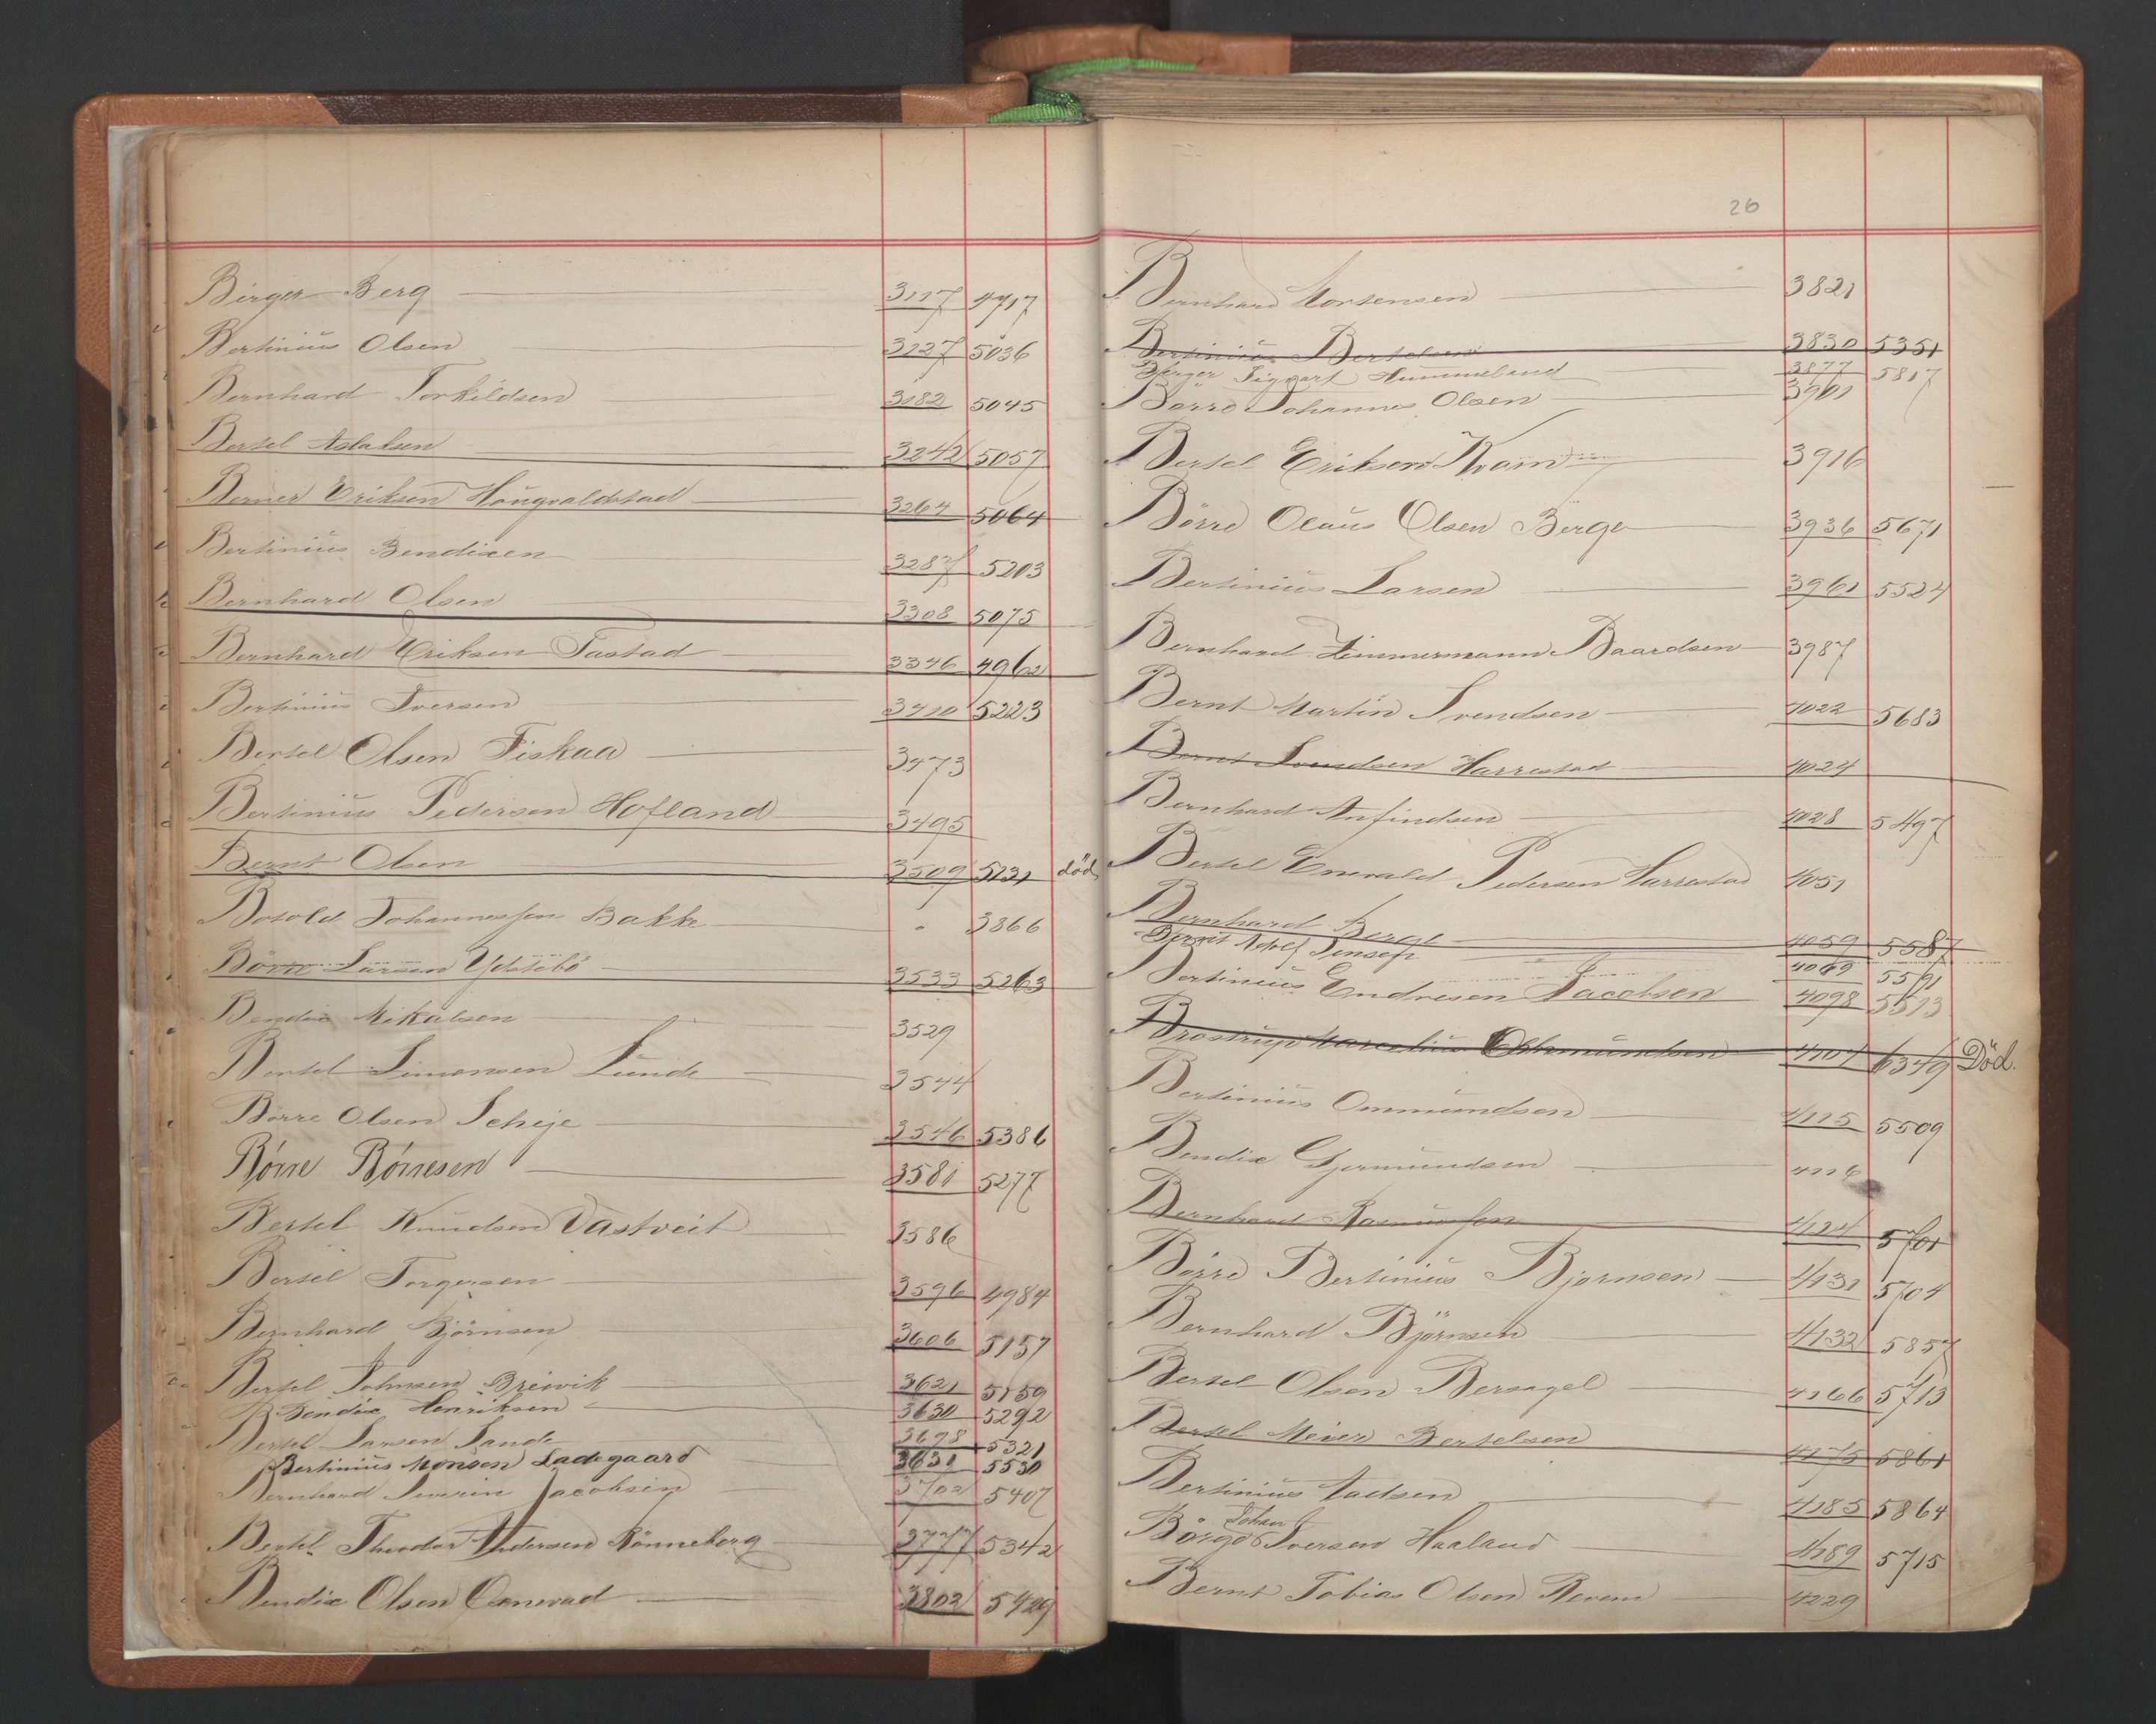 Birger Berg 3117 4717
Bertinius Olsen 3127 5036
Bernhard Torkildsen 3182 5045
Bertel Aslaksen 3242 5057
Berner Eriksen Hougvaldstad 3264 5064
Bertinius Bendixen 3287 5203
Bernhard Olsen 3308 5075
Bernhard Eriksen Tastad 3346 4962
Bertinius Iversen 3410 5223
Bertel Olsen Fiskaa 3473
Bertinius Pedersen Hofland 3495
Bernt Olsen 3509 5131 död
Botold Johannessen Bakke " 3866
Börre Larsen Ydstebö 3533 5263
Bendix Mikalsen 3529
Bertel Simonsen Lunde 3544
Börre Olsen Scheje 3546 5386
Börre Börresen 3581 5277
Bertel Knudsen Vastveit 3586
Bertel Torgersen 3596 4984
Bernhard Björnsen 3606 5157
Bertel Johnsen Breivik 3621 5159
Bendix Henriksen 3630 5292
Bertel Larsen Sande 3698 5321
Bertinius Monsen Ladegaard 3631 5530
Bernhard Severin Jacobsen 3702 5407
Bertel Theodor Andersen Rönneberg 3777 5342
Bendix Olsen Omevad 3802 5429
26
Bernhard Mortensen 3821
Bertinius Bertelsen 3830 5351
Birger Sigvart Hummeland 3877 5817
Börre Johannes Olsen 3901
Bertel Eriksen Kvam 3916
Börre Olaus Olsen Berge 3936 5671
Bertinius Larsen 3961 5524
Bernhard Zimmermann Baardsen 3987
Bernt Martin Svendsen 4022 5683
Bernt Svendsen Harrestad 4024
Bernhard Anfindsen 4028 5497
Bertel Enevald Pedersen Harrestad 4051
Bernhard Berge 4059 5587
Bernt Adolf Jensen 4069 5591
Bertinius Endresen Jacobsen 4098 5513
Brostrup Marcelius Osmundsen 4104 6349 Död.
Bertinius Ommundsen 4115 5509
Bendix Gjermundsen 4116
Bernhard Rasmussen 4124 5701
Börre Bertinius Bjørnsen 4131 5704
Bernhard Björnsen 4132 5857
Bertel Olsen Bersagel 4166 5713
Bertel Meier Bertelsen 4175 5861
Bertinius Aadsen 4185 5864
Johan
Börge Iversen Haaland 4189 5715
Bernt Tobias Olsen Revem 4229